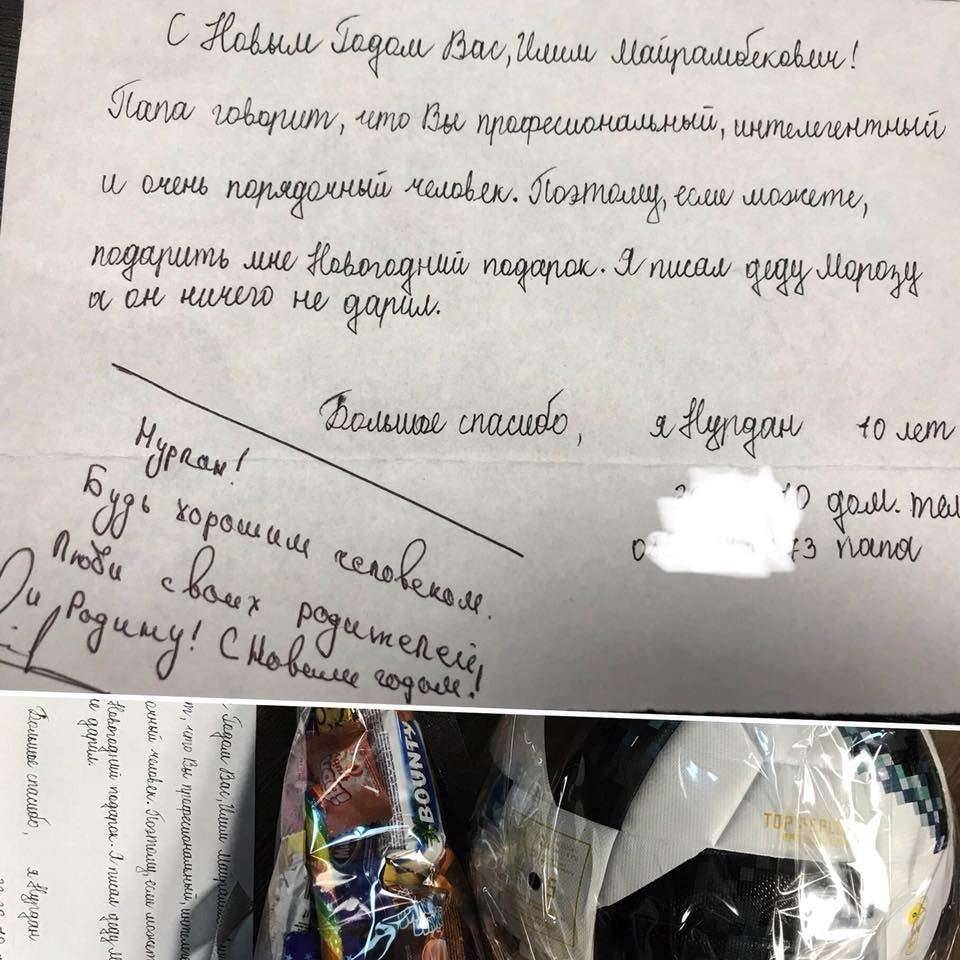 С Новым Годом Вас, Илим Майрамбекович!
Папа говорит, что Вы професиональный, интелегентный
и очень порядочный человек. Поэтому, если можете,
подарить мне Новогодний подарок. Я писал деду Морозу
а он ничего не дарил.
Большое спасибо, я Нурдан 10 лет
0 дом. тел
0 73 папа
Нурдан!
Будь хорошим человеком.
Люби своих родителей,
и Родину! С Новым годом!
Годом Вас, Илим
т, что Вы професиональный,
очный человек. Поэтому, если может
Новогодний подарок. Я писал деду М
не дарил.
Большое спасибо, я Нурдан
BOUNTY
TOP